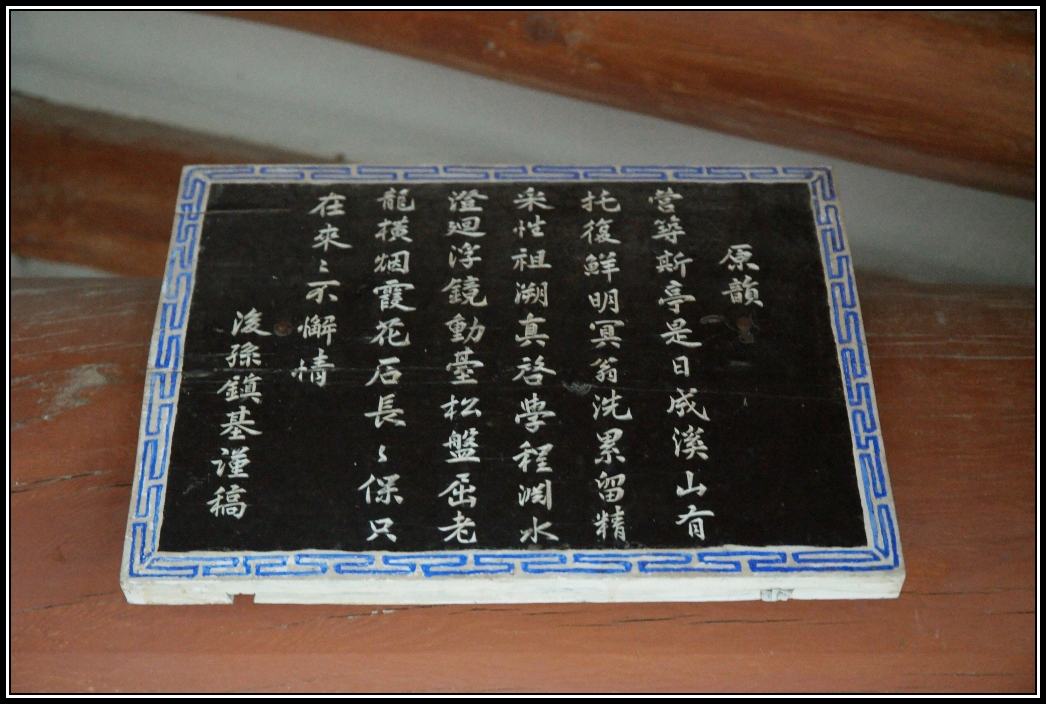 原韻
營築斯亭是日成溪山有
托復鮮明冥翁洗累留精
采性祖溯真啓學程淵水
澄迴浮鏡動臺松盤屈老
龍橫烟霞花石長〻保只
在來〻不懈情
後孫鎭基謹稿